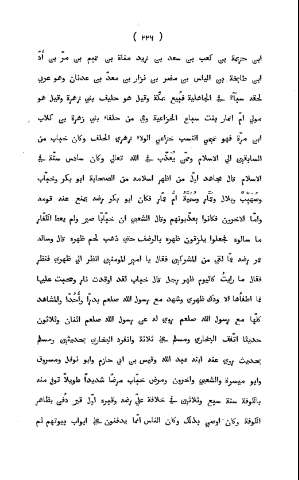 ( ٢٢٦ )
ابن خزيمة بن كعب بن سعد بن زيد مناة بن تميم بن مرّ بن أدّ
ابن طابخة بن الياس بن مضر بن نزار بن معدّ بن عدنان وهو عربي
لحقه سباء في الجاهلية فبيع بمكة وقيل هو حليف بني زهرة وقيل هو
مولى امّ انمار بنت سباع الخزاعية وهي من حلفاء بني زهرة بن كلاب
ابن مرّة فهو تميمي النسب خزاعي الولاء زهري الحلف وكان خباب من
السابقين الى الاسلام وممّن يُعذَّب في الله تعالى وكان سادس ستّة في
الاسلام قال مجاهد اوّل من اظهر اسلامه من الصحابة ابو بكر وخباب
وصُهَيْب وبلال وعمّار وسُمَيّة أُمّ عمار فكان ابو بكر رضه يمنع عنه قومه
وامّا الاخرون فكانوا يعذّبونهم وقال الشعبي ان خبّابا صبر ولم يعط الكفّار
ما سالوه فجعلوا يلزقون ظهره بالرضف حتى ذهب لحم ظهره قال وساله
عمر رضه عمّا لقى من المشركين فقال يا امير المومنين انظر الى ظهري فنظر
فقال ما رايت كاليوم ظهر رجل قال خباب لقد اوقدت نار وسحبت عليها
فما اطفأها الا ودك ظهري وشهد مع رسول الله صلعم بدرًا وأُحُدًا والمشاهد
كلّها مع رسول الله صلعم روى له عن رسول الله صلعم اثنان وثلاثون
حديثا اتّفق البخاري ومسلم على ثلاثة وانفرد البخاري بحديثين ومسلم
بحديث روى عنه ابنه عبد الله وقيس بن ابي حازم وابو وائل ومسروق
وابو ميسرة والشعبي واخرون ومرض خبّاب مرضًا شديدًا طويلًا توفى منه
بالكوفة سنة سبع وثلاثين في خلافة على رضه وقبره اوّل قبر دُفن بظاهر
الكوفة وكان اوصى بذلك وكان الناس انّما يدفنون في ابواب بيوتهم ثم